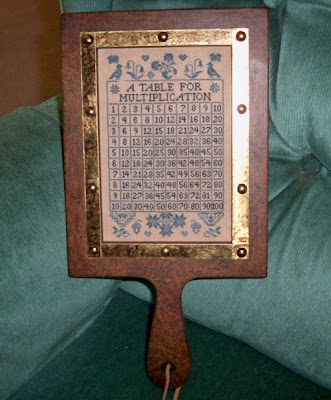 A TABLE FOR
MULTIPLICATION
1 2 3 4 5 6 7 8 9 10
2 4 6 8 10 12 14 16 18 20
3 6 9 12 15 18 21 24 27 30
4 8 12 16 20 24 28 32 36 40
5 10 15 20 25 30 35 40 45 50
6 12 18 24 30 36 42 48 54 60
7 14 21 28 35 42 49 56 63 70
8 16 24 32 40 48 56 64 72 80
9 18 27 36 45 54 63 72 81 90
10 20 30 40 50 60 70 80 90 100